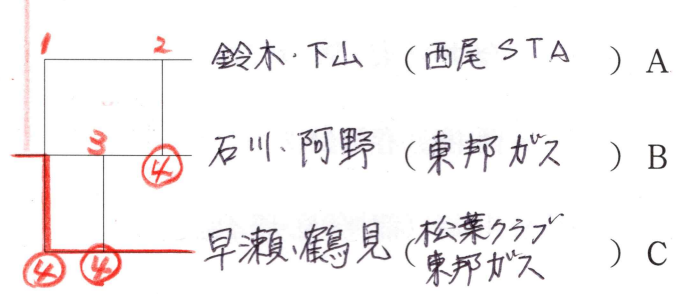 1 2 鈴木・下山 (西尾STA) A
3 ④ 石川・阿野 (東邦ガス) B
④ ④ 早瀬・鶴見 (松葉クラブ
東邦ガス) C